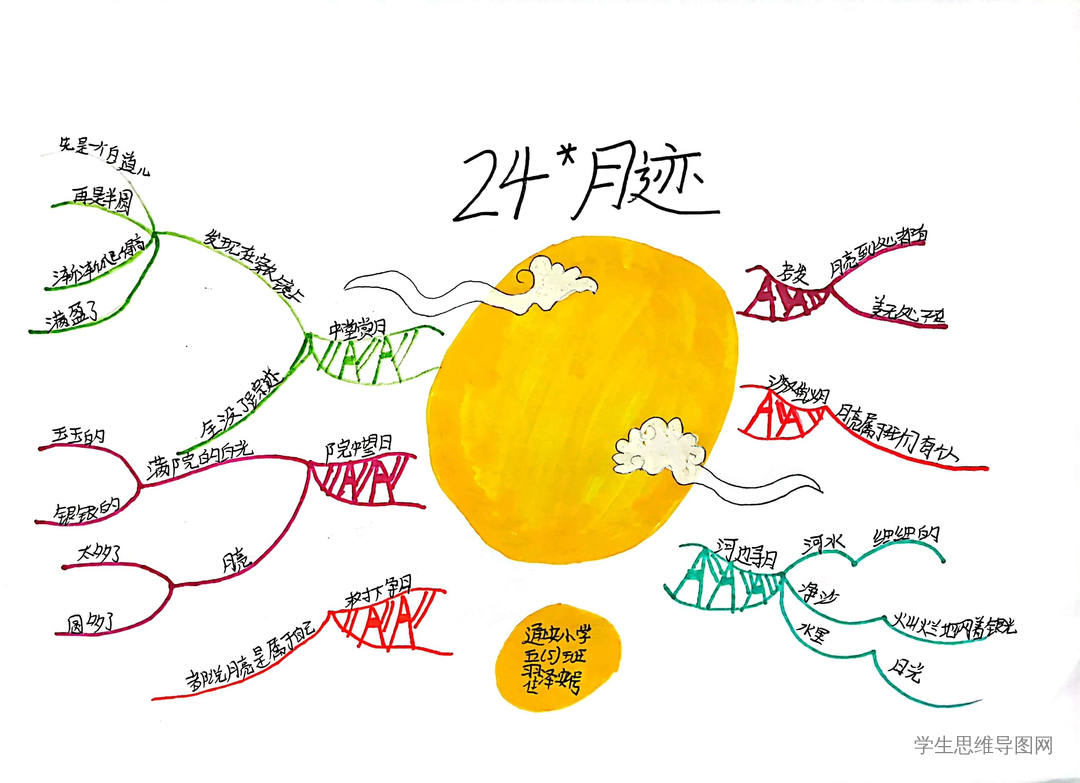 24*月迹
先是一个白道儿
再是半圆
渐渐爬得高
满盈了
发现在穿衣镜上
中堂赏月
全没了踪迹
玉玉的
银银的
满院的白光
院中望月
太多了
圆多了
月亮
树下争月
都说月亮是属于自己
月亮到处都有
沙滩
月亮属于我们每个人
河边寻月
河水
细细的
净沙
灿灿烂地闪着银光
水里
月光
通
小学
五(5)班
泽
学生思维导图网